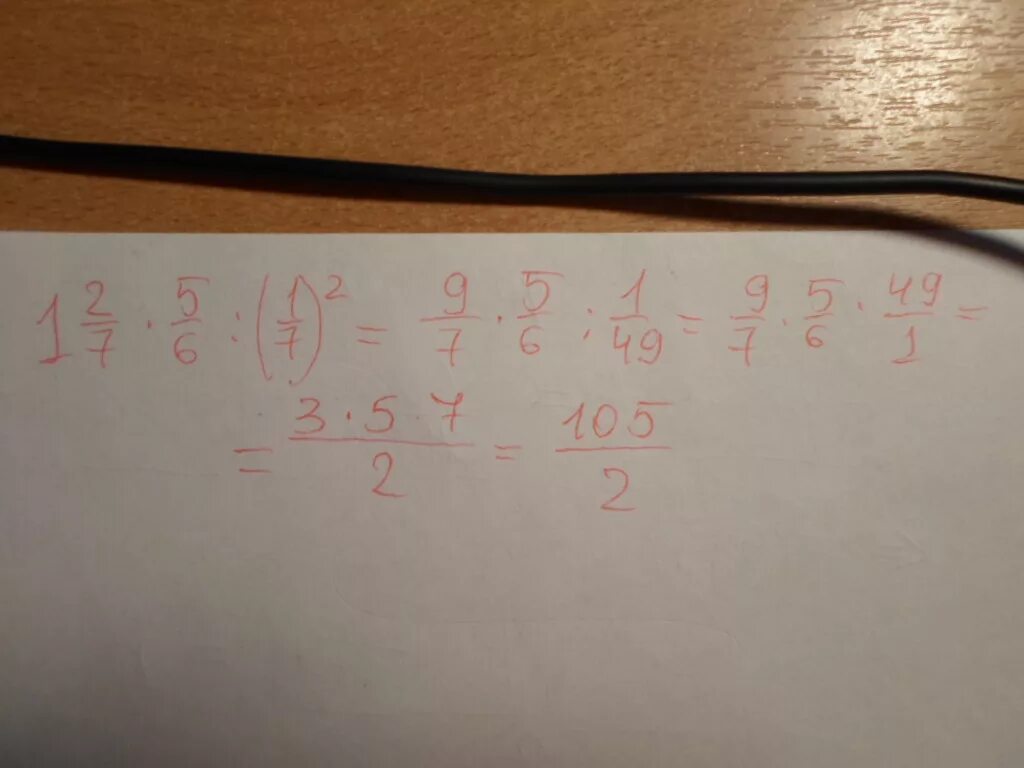 1 2/7 · 5/6 : (1/7)² = 9/7 · 5/6 : 1/49 = 9/7 · 5/6 · 49/1 =
= 3·5·7/2 = 105/2